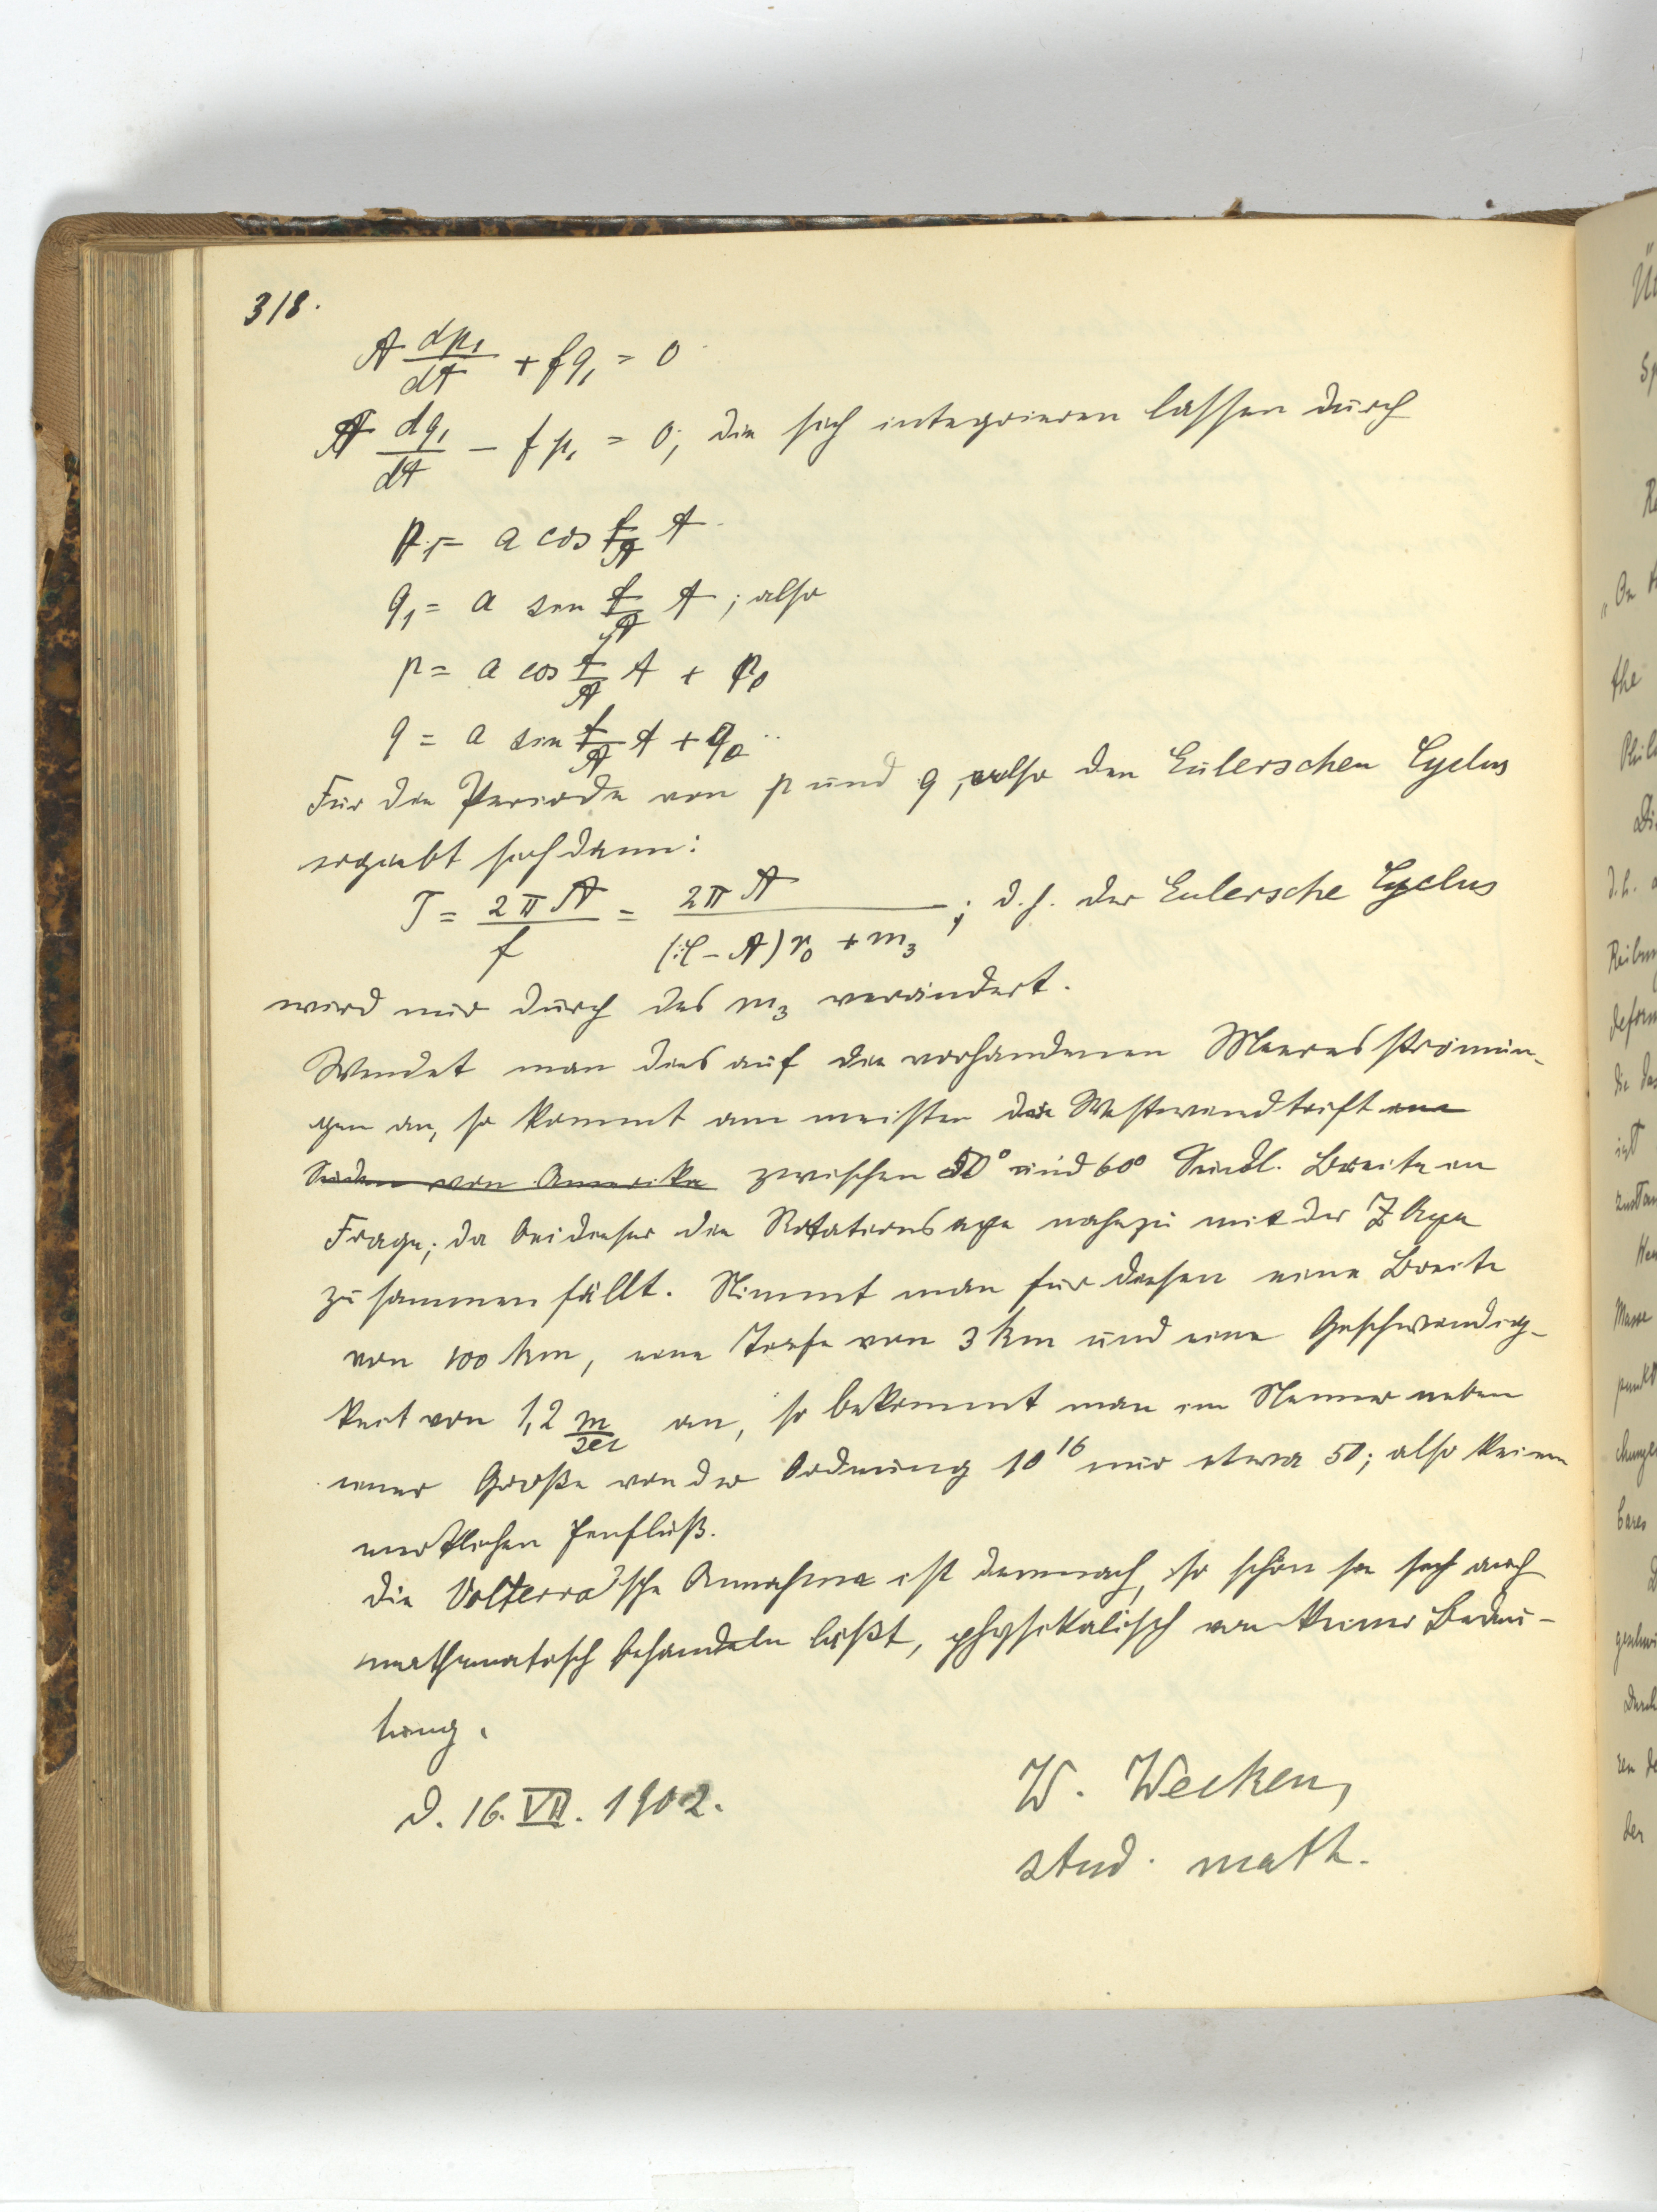 318.
A dp₁/dt + f q₁ = 0
A dq₁/dt - f p₁ = 0; die sich integrieren lassen durch
p₁ = a cos f/A t
q₁ = a sin f/A t; also
p = a cos f/A t + p₀
q = a sin f/A t + q₀
Für die Periode von p und q, also den Eulerschen Cyclus
ergiebt sich dann:
T = 2πA/f = 2πA/((C-A) r₀ + m₃); d.h. der Eulersche Cyclus
wird nur durch das m₃ verändert.
Wendet man dies auf die vorhandenen Meeresströmun-
gen an, so kommt am meisten die Westwindtrift im
Süden von Amerika zwischen 50° und 60° Südl. Breite in
Frage; da bei dieser die Rotationsaxe nahezu mit der Z Axe
zusammenfällt. Nimmt man für diesen eine Breite
von 100 km, eine Tiefe von 3 km und eine Geschwindig-
keit von 1,2 m/sec an, so bekommt man im Nenner neben
einer Größe von der Ordnung 10¹⁶ nur etwa 50; also keinen
merklichen Einfluß.
Die Volterra'sche Annahme ist demnach, so schön sie sich auch
mathematisch behandeln läßt, physikalisch von keiner Bedeu-
tung.
d. 16. VII. 1902.
W. Wecken,
stud. math.